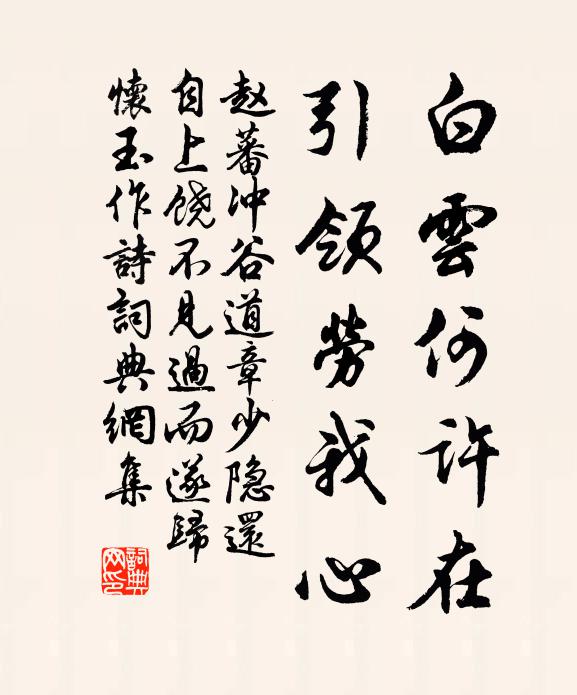 白雲何許在
引領勞我心
赵蕃冲谷道章少隐還
自上饶不見過而遂歸
懷玉作詩詞典網集
詞典
网印